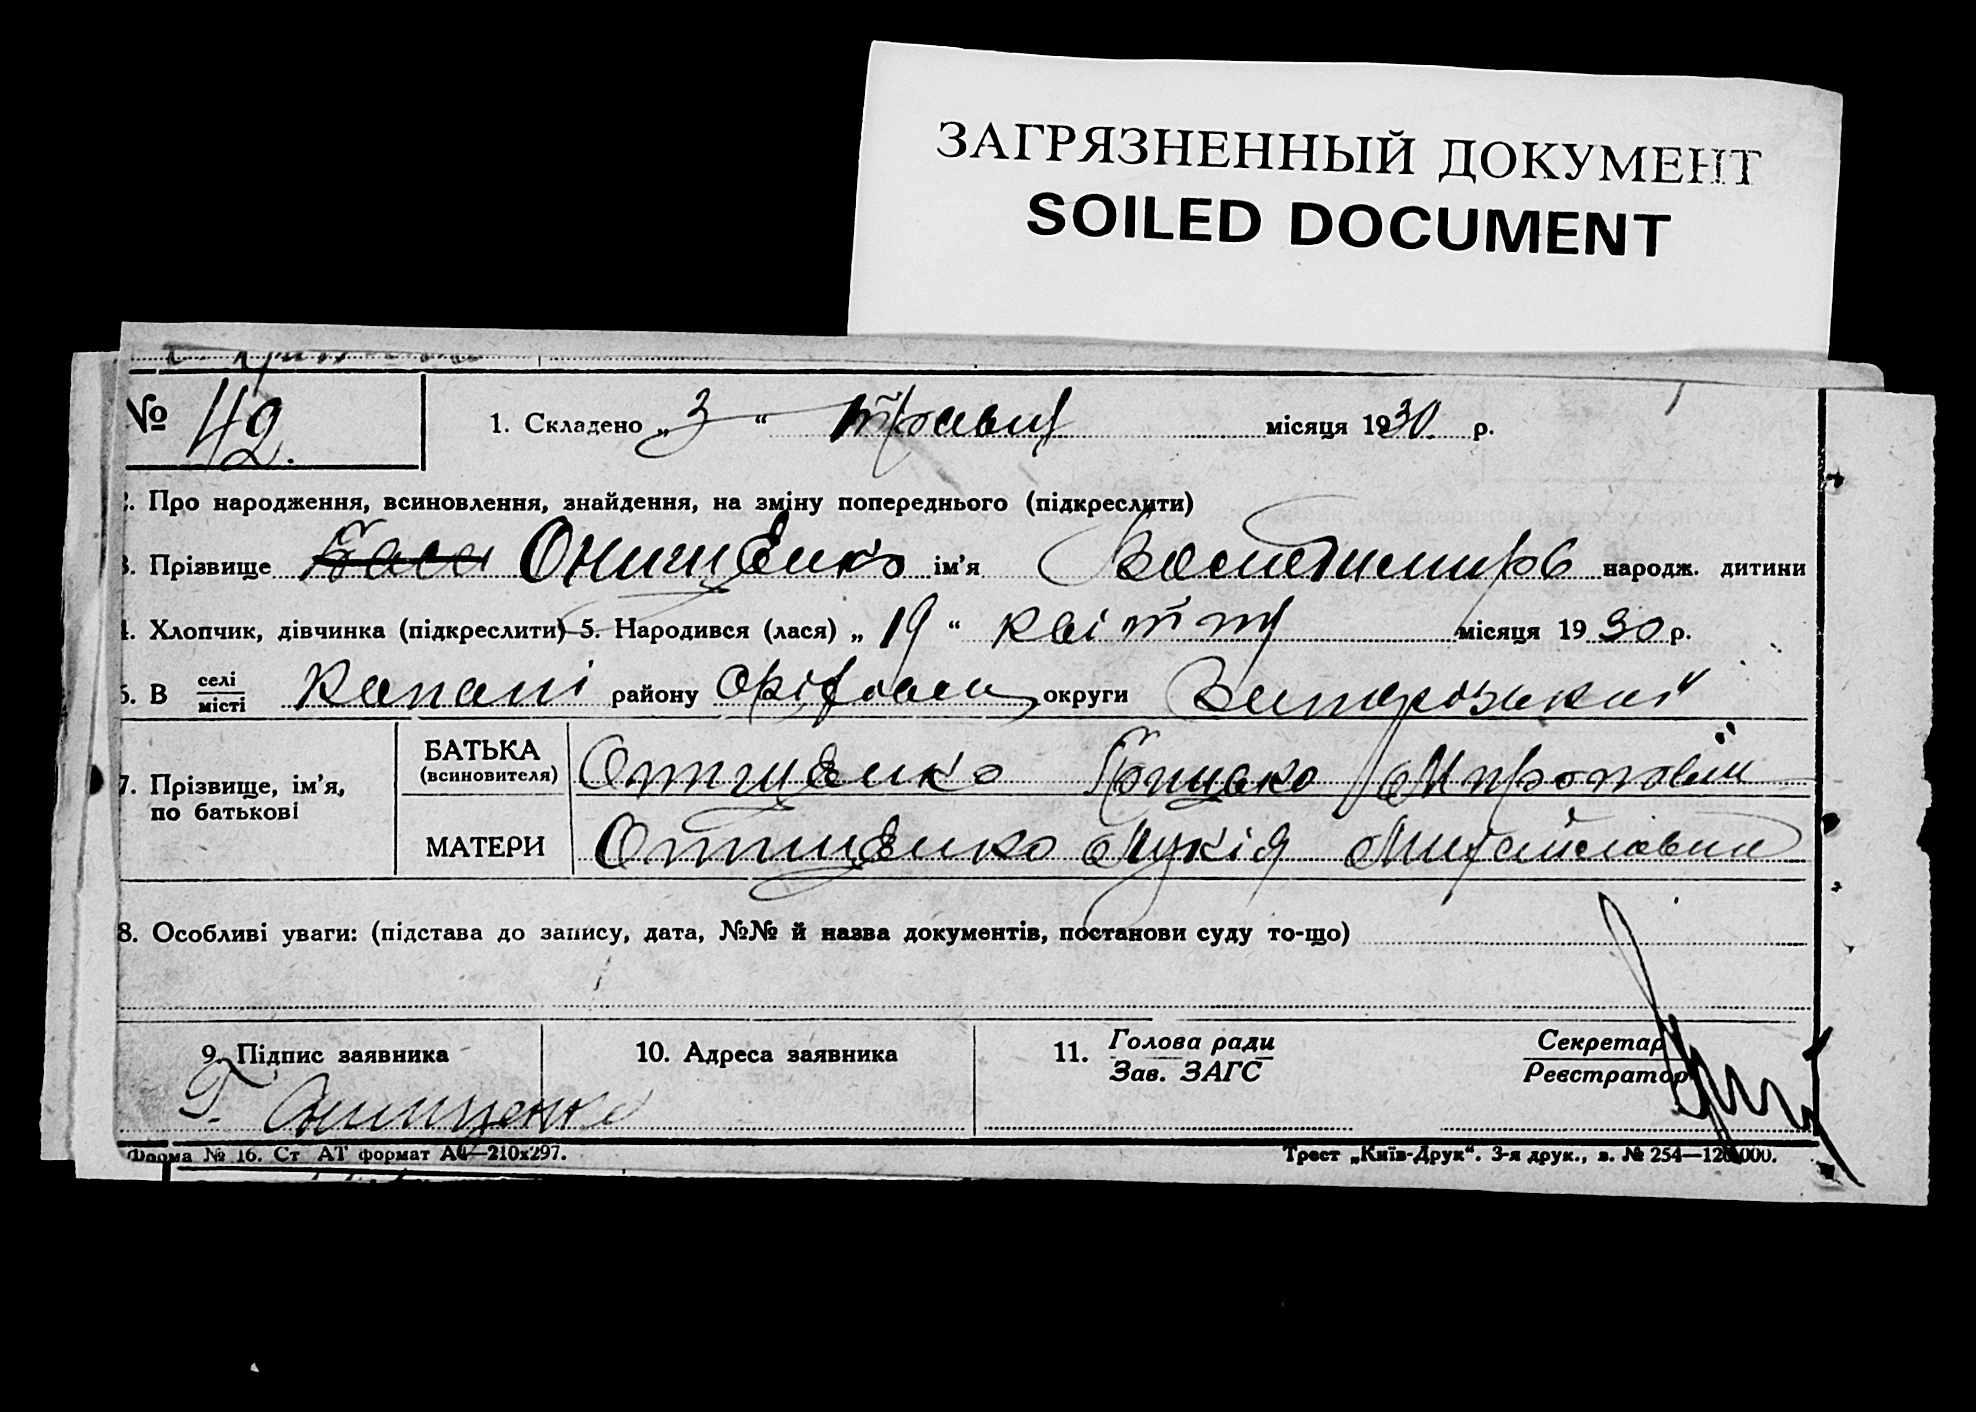 ЗАГРЯЗНЕННЫЙ ДОКУМЕНТ
SOILED DOCUMENT
№ 42. 1. Складено „3“ травня місяця 1930 р.
2. Про народження, всиновлення, знайдення, на зміну попереднього (підкреслити)
3. Прізвище Онищенко ім'я народж. дитини
4. Хлопчик, дівчинка (підкреслити) 5. Народився (лася) „19“ квітня місяця 1930 р.
6. В селі місті Капані району округи Запорозької
7. Прізвище, ім'я, по батькові
БАТЬКА (всиновителя) Онищенко Миронович
МАТЕРИ Онищенко Михайлівна
8. Особливі уваги: (підстава до запису, дата, №№ й назва документів, постанови суду то-що)
9. Підпис заявника 10. Адреса заявника 11. Голова ради Зав. ЗАГС Секретар Реєстратор
Г. Онищенко
Форма № 16. Ст АТ формат А4—210х297. Трест „Київ-Друк“. 3-я друк., з. № 254—120.000.